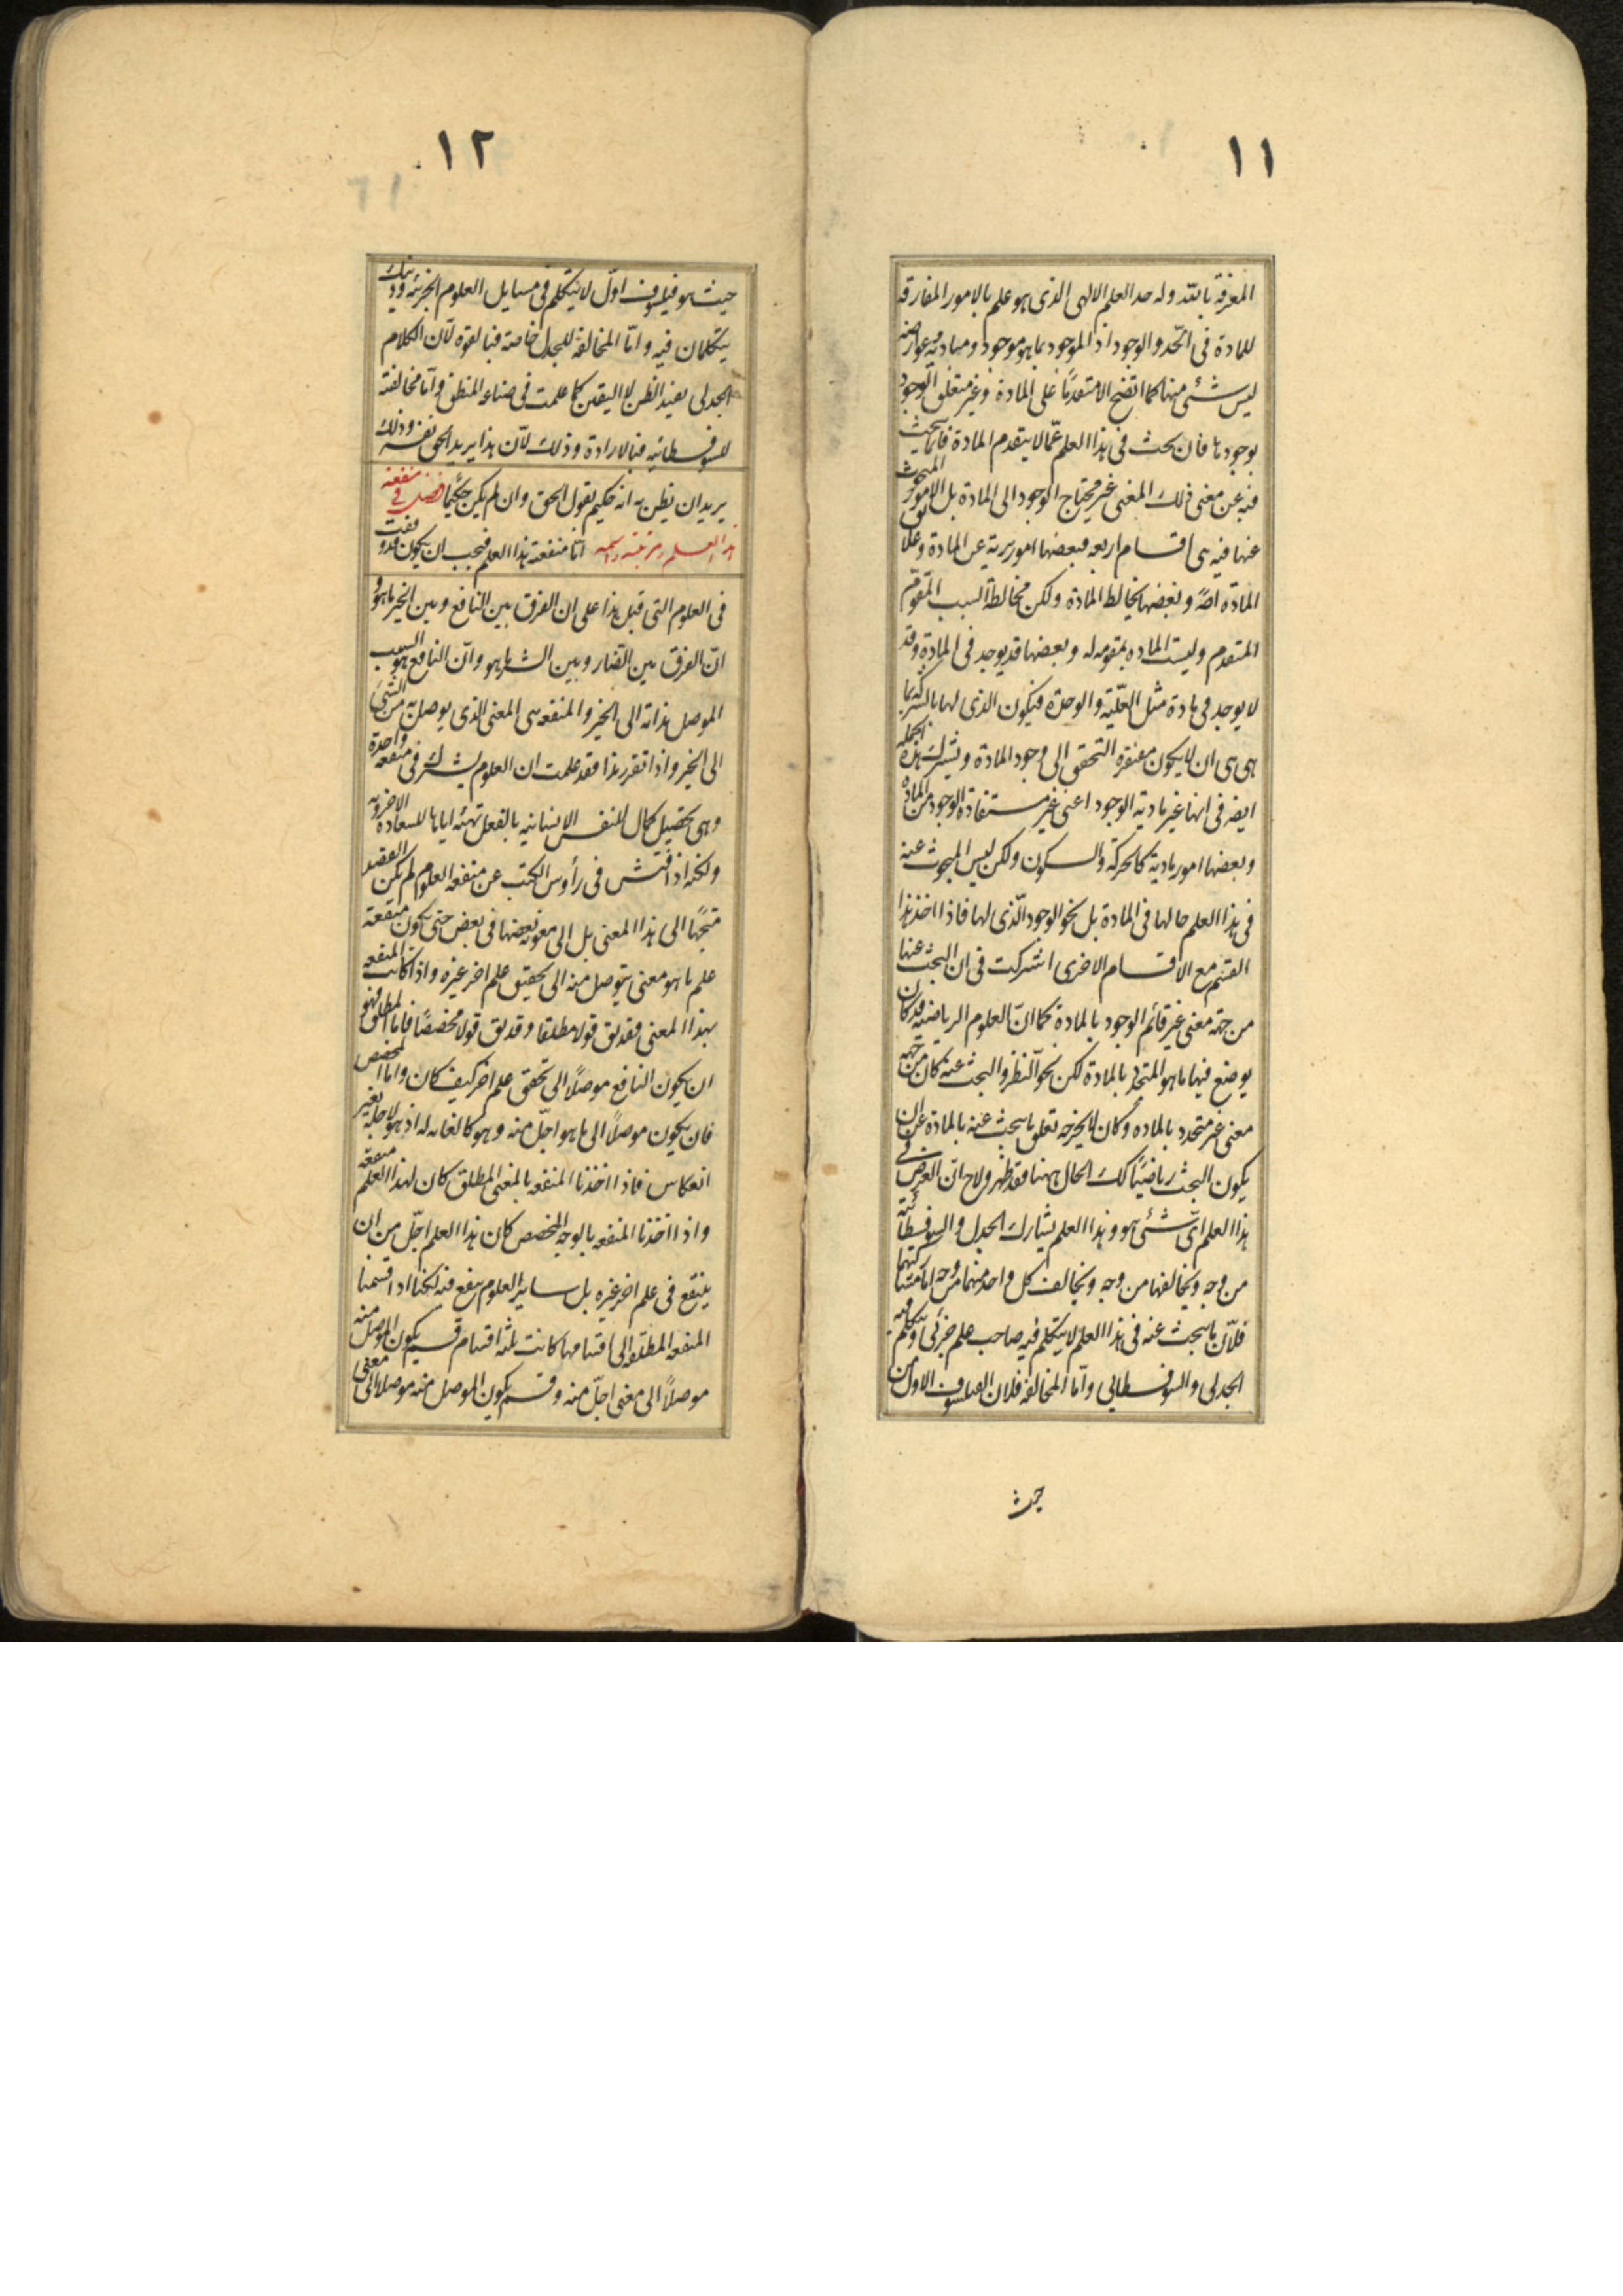 ١١
المعرفة بالله وله حد العلم الالهى الذى هو علم بالامور المفارقه
للمادة فى الحد والوجود اذ الموجود بما هو موجود ومباديه وعوارضه
ليس شئ منها كما اتضح الا متقدمًا على المادة وغير متعلق الوجود
بوجودها فان بحث فى هذا العلم عمّا لا يتقدم المادة فانما يبحث
فيه عن معنى ذلك المعنى غير محتاج الوجود الى المادة بل الامور المبحوث
عنها فيه هى اقسام اربعه فبعضها امور برية عن المادة وعلائق
المادة اصلا وبعضها يخالط المادة ولكن مخالطة السبب المقوّم
المتقدم وليست الماده بمقومه له وبعضها قد يوجد فى المادة وقد
لا يوجد فى مادة مثل العلّية والوحدة فيكون الذى لها بالشركه بما
هى هى ان لا يكون مفتقرة التحقق الى وجود المادة ويشترك هذه الجمله
ايضه فى انها غير مادية الوجود اعنى غير مستفادة الوجود من الماده
وبعضها امور مادية كالحركة والسكون ولكن ليس المبحوث عنه
فى هذا العلم حالها فى المادة بل نحو الوجود الّذى لها فاذا اخذ هذا
القسم مع الاقسام الاخرى اشتركت فى ان البحث عنها
من جهة معنى غير قائم الوجود بالمادة كما انّ العلوم الرياضيه قد كان
يوضع فيها ما هو المتحدد بالمادة لكن نحو النظر والبحث عنه كان من جهه
معنى غير متحدد بالماده وكان لا يخرجه تعلق ما يبحث عنه بالمادة عن ان
يكون البحث رياضيًا كك الحال ههنا فقد ظهر ولاح انّ الغرض فى
هذا العلم اىّ شئ هو وهذا العلم يشارك الجدل والسوفسطائية
من وجه ويخالفها من وجه ويخالف كل واحد منهما من وجه اما مشاركتهما
فلانّ ما يبحث عنه فى هذا العلم لا يتكلم فيه صاحب علم جزئى ويتكلم فيه
الجدلى والسوفسطايى وامّا المخالفة فلان الفيلسوف الاول من
حيث
١٢
حيث هو فيلسوف اوّل لا يتكلم فى مسايل العلوم الجزئيه وذينك
يتكلمان فيه وامّا المخالفة للجدل خاصة فبالقوه لانّ الكلام
الجدلى يفيد الظن لا اليقين كما علمت فى صناعه المنطق وامّا مخالفته
للسوفسطائيه فبالارادة وذلك لانّ هذا يريد الحق نفسه وذلك
يريد ان يظن به انه حكيم يقول الحق وان لم يكن حكيمًا فصل فى منفعه
هذا العلم ومرتبته واسمه امّا منفعة هذا العلم فيجب ان يكون قد وقفت
فى العلوم التى قبل هذا على ان الفرق بين النافع وبين الخير ما هو و
انّ الفرق بين الضار وبين الشر ما هو وانّ النافع هو السبب
الموصل بذاته الى الخير والمنفعه هى المعنى الذى يوصل به من الشى
الى الخير واذا تقرر هذا فقد علمت ان العلوم يشترك فى منفعه واحدة
وهى تحصيل كمال النفس الانسانيه بالفعل تهيئه اياها للسعادة الاخرويه
ولكنه اذا فتش فى رأوس الكتب عن منفعه العلوم لم يكن القصد
متجهًا الى هذا المعنى بل الى معونه بعضها فى بعض حتى يكون منفعة
علم ما هو معنى يتوصل منه الى تحقيق علم اخر غيره واذا كانت المنفعه
بهذا المعنى فقد يق قولا مطلقا وقد يق قولا مخصصًا فاما المطلق فهو
ان يكون النافع موصلًا الى تحقق علم اخر كيف كان واما المخصص
فان يكون موصلًا الى ما هو اجلّ منه وهو كالغايه له اذ هو لاجله بغير
انعكاس فاذا اخذنا المنفعه بالمعنى المطلق كان لهذا العلم منفعة
واذا اخذنا المنفعه بالوجه المخصص كان هذا العلم اجلّ من ان
ينفع فى علم اخر غيره بل ساير العلوم ينفع فيه لكنا اذا قسمنا
المنفعه المطلقه الى اقسامها كانت ثلثه اقسام قسم يكون الموصل منه
موصلًا الى معنى اجلّ منه وقسم يكون الموصل منه موصلا الى معنى